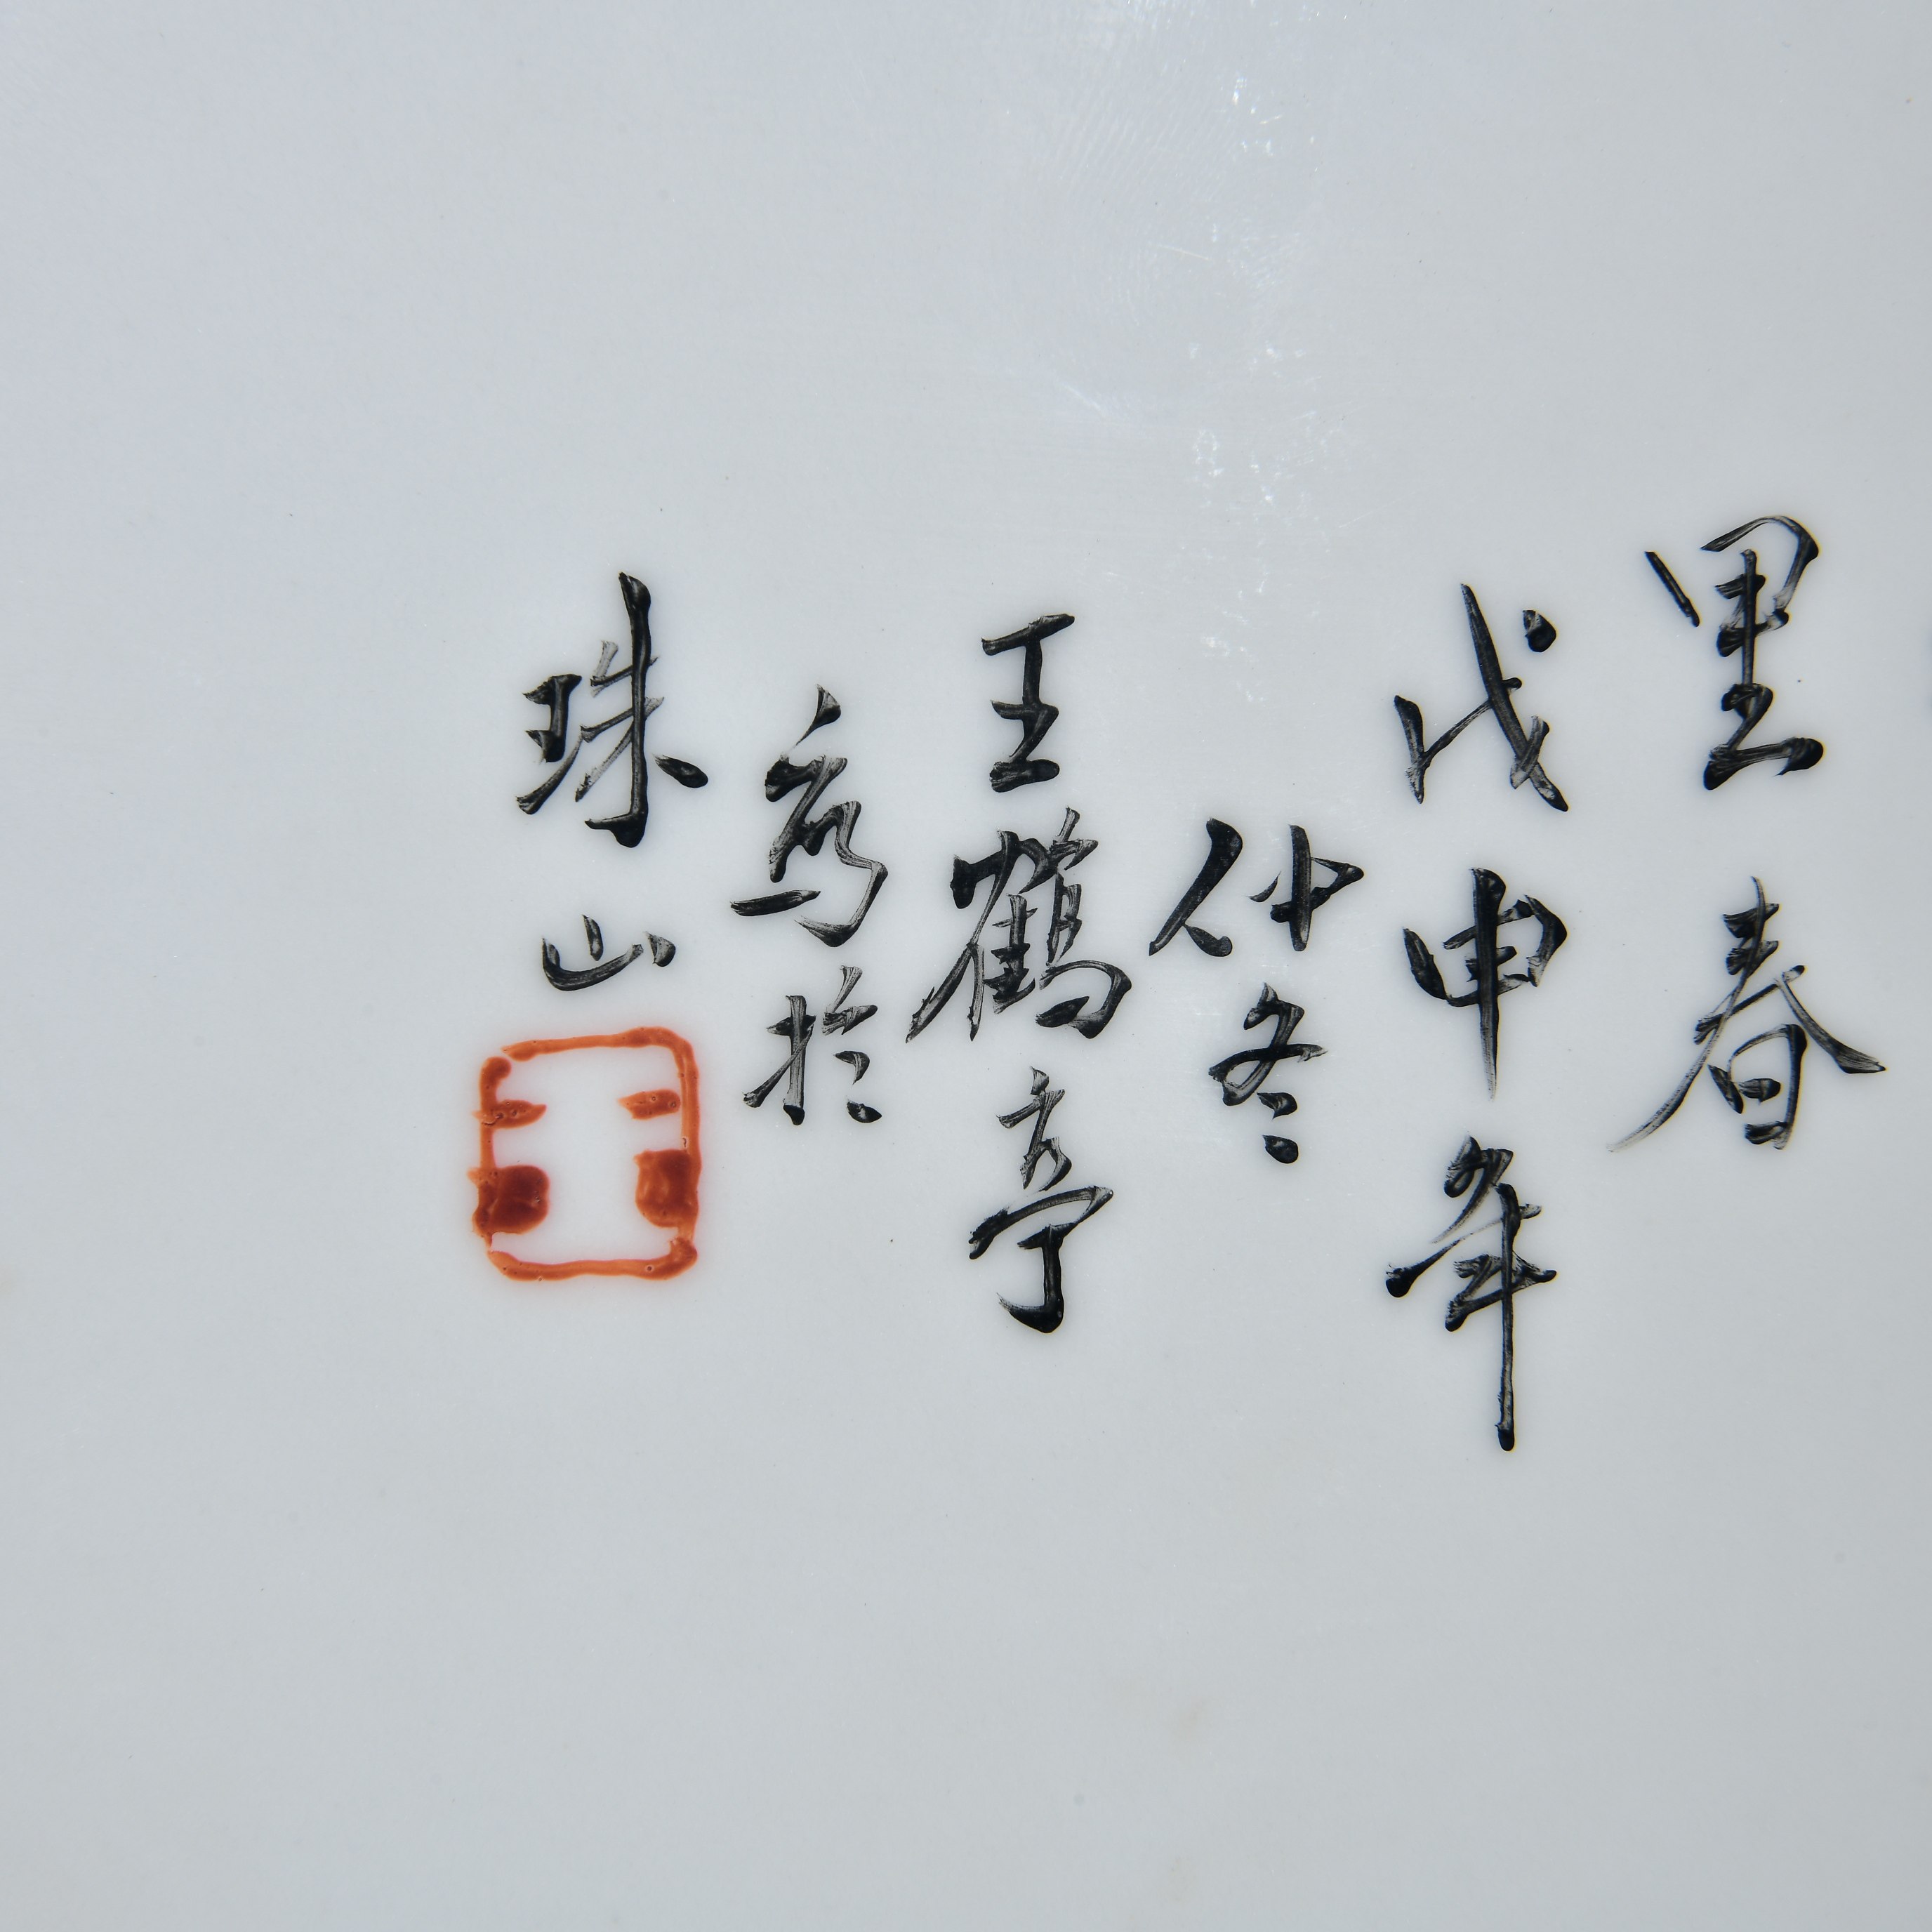 里春
戊申年
仲冬
王鶴亭
寫於
珠山
王